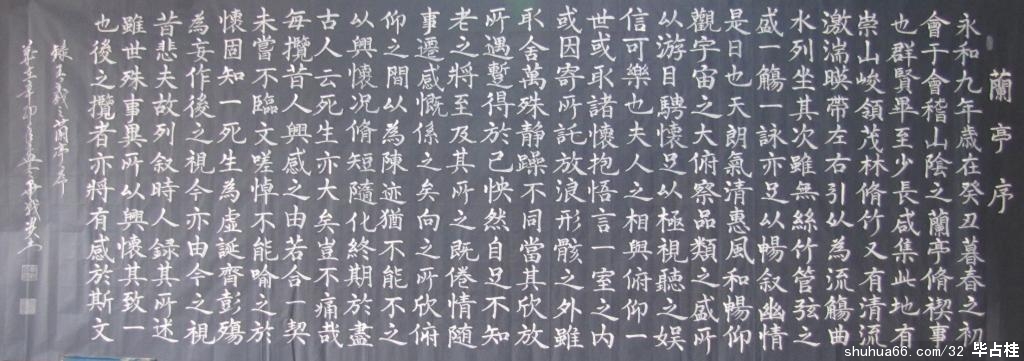 蘭亭序
永和九年歲在癸丑暮春之初
會于會稽山陰之蘭亭脩禊事
也群賢畢至少長咸集此地有
崇山峻領茂林脩竹又有清流
激湍暎帶左右引以為流觴曲
水列坐其次雖無絲竹管弦之
盛一觴一詠亦足以暢叙幽情
是日也天朗氣清惠風和暢仰
觀宇宙之大俯察品類之盛所
以游目騁懷足以極視聽之娱
信可樂也夫人之相與俯仰一
世或取諸懷抱悟言一室之内
或因寄所託放浪形骸之外雖
取舍萬殊静躁不同當其欣放
所遇暫得於己怏然自足不知
老之將至及其所之既倦情隨
事遷感慨係之矣向之所欣俯
仰之間以為陳迹猶不能不之
以興懷况脩短隨化終期於盡
古人云死生亦大矣豈不痛哉
每攬昔人興感之由若合一契
未嘗不臨文嗟悼不能喻之於
懷固知一死生為虚誕齊彭殤
為妄作後之視今亦由今之視
昔悲夫故列叙時人録其所述
雖世殊事異所以興懷其致一
也後之攬者亦將有感於斯文
録王羲之蘭亭序
shuhua66.com/32 毕占桂